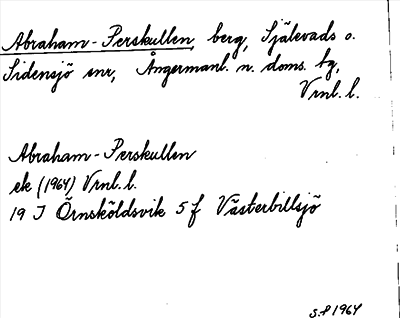 Abraham-Perskullen, berg, Själevads o.
Sidensjö snr, Ångermanl. n. doms. bg,
Vrnl. l.
Abraham-Perskullen
ek (1964) Vrnl. l.
19 J Örnsköldsvik 5 f Västerbillsjö
S.P 1964